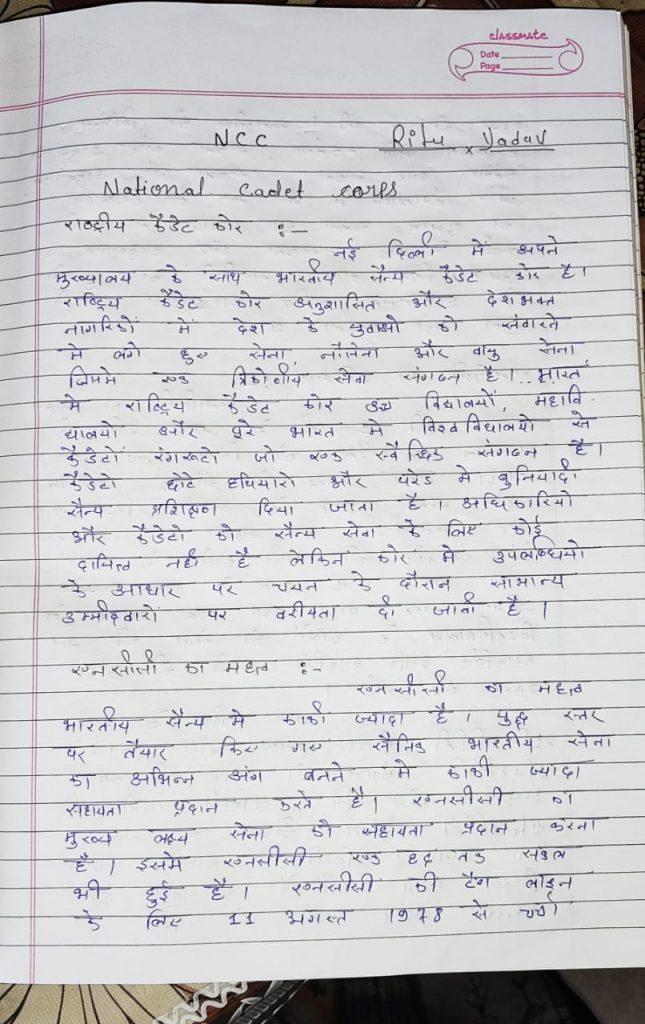 classmate
Date
Page
NCC Ritu Yadav
National cadet corps
राष्ट्रीय कैडेट कोर :-
नई दिल्ली में अपने
मुख्यालय के साथ भारतीय सैन्य कैडेट कोर है।
राष्ट्रिय कैडेट कोर अनुशासित और देशभक्त
नागरिकों में देश के युवाओ को संवारने
मे लगे हुए सेना, नौसेना और वायु सेना
जिसमे एक त्रिकोणीय सेवा संगठन है। भारत
मे राष्ट्रिय कैडेट कोर उच्च विद्यालयों, महावि
द्यालयो और पूरे भारत मे विश्वविद्यालयो से
कैडेटों रंगरूटो जो एक स्वैच्छिक संगठन है।
कैडेटो छोटे हथियारो और परेड मे बुनियादी
सैन्य प्रशिक्षण दिया जाता है। अधिकारियो
और कैडेटो को सैन्य सेवा के लिए कोई
दायित्व नही है लेकिन कोर मे उपलब्धियो
के आधार पर चयन के दौरान सामान्य
उम्मीदवारों पर वरीयता दी जाती है।
एनसीसी का महत्व :-
एनसीसी का महत्व
भारतीय सैन्य मे काफी ज्यादा है। युद्ध स्तर
पर तैयार किए गए सैनिक भारतीय सेना
का अभिन्न अंग बनने मे काफी ज्यादा
सहायता प्रदान करते है। एनसीसी का
मुख्य लक्ष्य सेना को सहायता प्रदान करना
है। इसमे एनसीसी एक हद तक सफल
भी हुई है। एनसीसी की टैग लाइन
के लिए 11 अगस्त 1978 से चर्चा